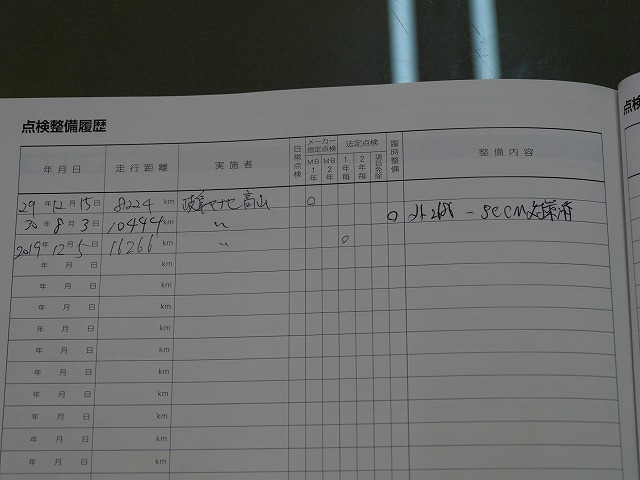 点検整備履歴
年月日 走行距離 実施者 日常点検 メーカー指定点検 MB1年 MB2年 法定点検 1年毎 2年毎 項目免除 臨時整備 整備内容
29年12月15日 8224km 岐阜ヤナセ高山 ○
30年8月3日 10494km 〃 ○ SCCM 済
2019年12月5日 16266km 〃 ○
年 月 日 km
年 月 日 km
年 月 日 km
年 月 日 km
年 月 日 km
年 月 日 km
年 月 日 km
年 月 日 km
年 月 日 km
年 月 日 km
点検